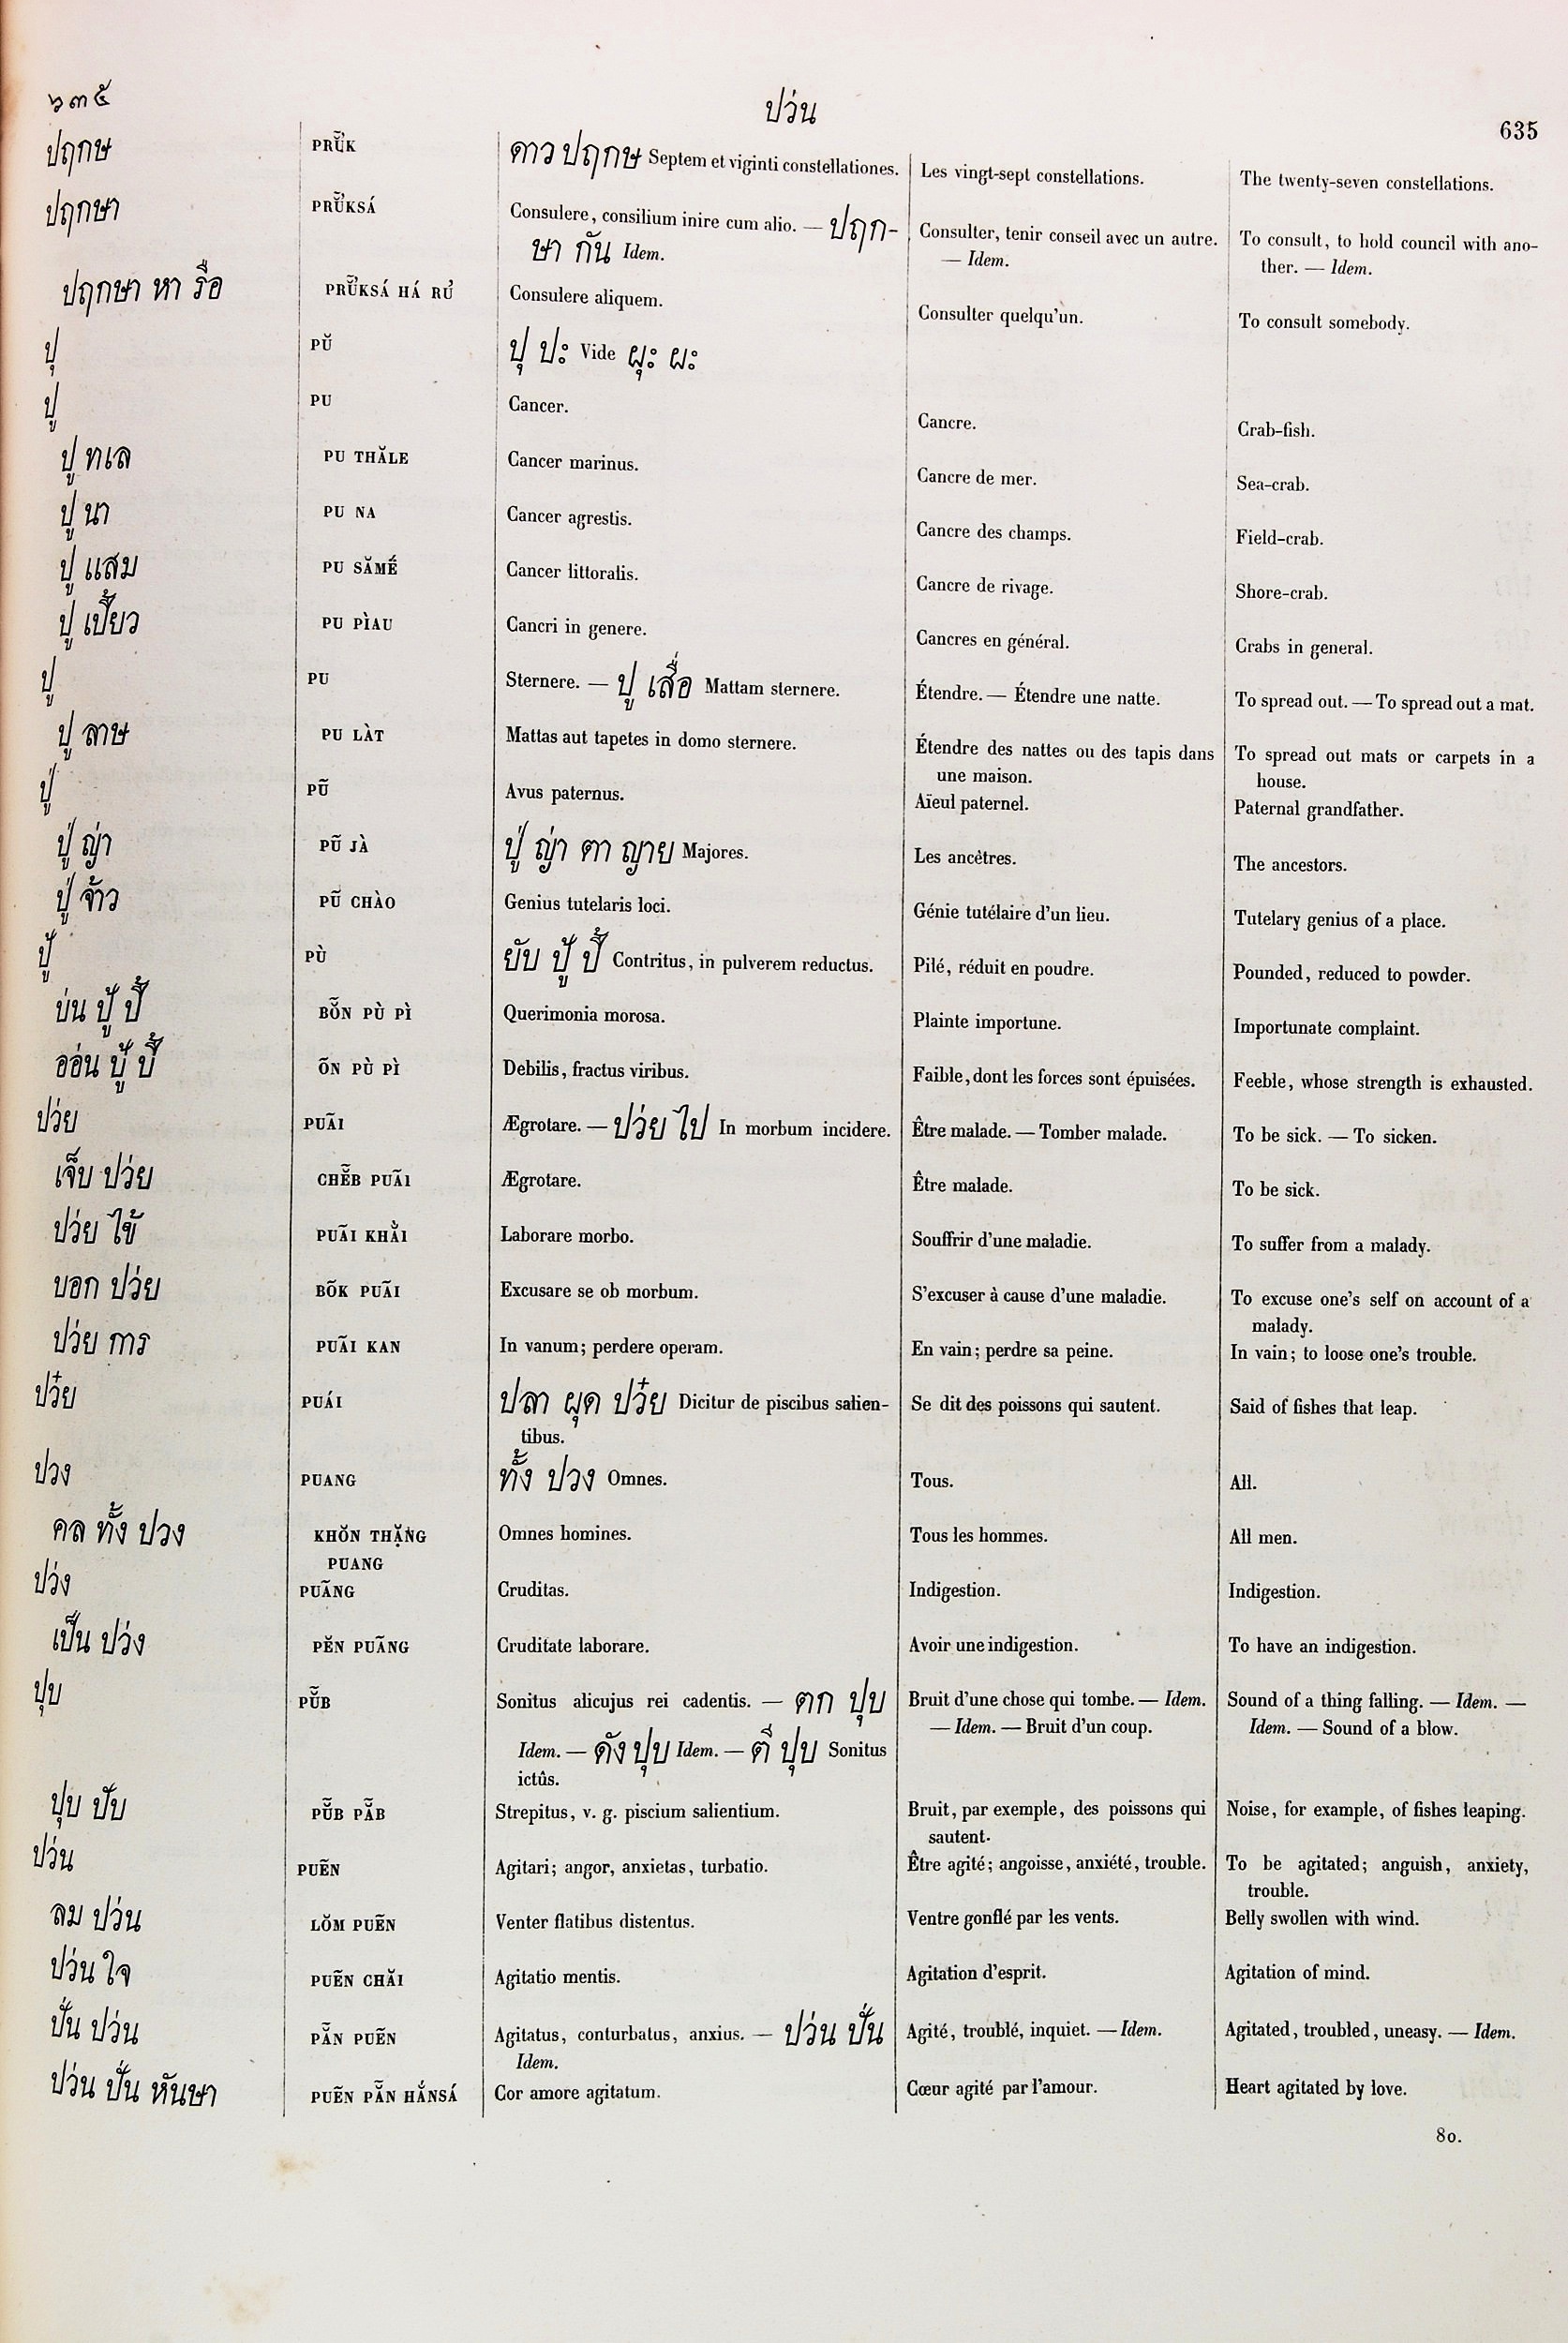 ๖๓๕ ปว่น 635
ปฤกษ PRŬ̉K ดาว ปฤกษ Septem et viginti constellationes. Les vingt-sept constellations. The twenty-seven constellations.
ปฤกษา PRŬ̉KSÁ Consulere, consilium inire cum alio. — ปฤก- Consulter, tenir conseil avec un autre. To consult, to hold council with ano-
ษา กัน Idem. — Idem. ther. — Idem.
ปฤกษา หา รือ PRŬ̉KSÁ HÁ RỦ Consulere aliquem. Consulter quelqu'un. To consult somebody.
ปุ PŬ ปุ ปะ Vide ผุะ ผะ
ปู PU Cancer. Cancre. Crab-fish.
ปู ทเล PU THĂLE Cancer marinus. Cancre de mer. Sea-crab.
ปู นา PU NA Cancer agrestis. Cancre des champs. Field-crab.
ปู แสม PU SĂMẾ Cancer littoralis. Cancre de rivage. Shore-crab.
ปู เปี้ยว PU PÌAU Cancri in genere. Cancres en général. Crabs in general.
ปู PU Sternere. — ปู เสื่อ Mattam sternere. Étendre. — Étendre une natte. To spread out. — To spread out a mat.
ปู ลาษ PU LÀT Mattas aut tapetes in domo sternere. Étendre des nattes ou des tapis dans To spread out mats or carpets in a
une maison. house.
ปู่ PŨ Avus paternus. Aïeul paternel. Paternal grandfather.
ปู่ ญ่า PŨ JÀ ปู่ ญ่า ตา ญาย Majores. Les ancêtres. The ancestors.
ปู่ จ้าว PŨ CHÀO Genius tutelaris loci. Génie tutélaire d'un lieu. Tutelary genius of a place.
ปู้ PÙ ยับ ปู้ ปี้ Contritus, in pulverem reductus. Pilé, réduit en poudre. Pounded, reduced to powder.
บ่น ปู้ ปี้ BŎ̃N PÙ PÌ Querimonia morosa. Plainte importune. Importunate complaint.
ออ่น ปู้ ปี้ ÕN PÙ PÌ Debilis, fractus viribus. Faible, dont les forces sont épuisées. Feeble, whose strength is exhausted.
ปว่ย PUÃI Ægrotare. — ปว่ย ไป In morbum incidere. Être malade. — Tomber malade. To be sick. — To sicken.
เจ็บ ปว่ย CHĔ̃B PUÃI Ægrotare. Être malade. To be sick.
ปว่ย ไข้ PUÃI KHẰI Laborare morbo. Souffrir d'une maladie. To suffer from a malady.
บอก ปว่ย BÕK PUÃI Excusare se ob morbum. S'excuser à cause d'une maladie. To excuse one's self on account of a
malady.
ปว่ย การ PUÃI KAN In vanum; perdere operam. En vain; perdre sa peine. In vain; to loose one's trouble.
ปว๋ย PUÁI ปลา ผุด ปว๋ย Dicitur de piscibus salien- Se dit des poissons qui sautent. Said of fishes that leap.
tibus.
ปวง PUANG ทั้ง ปวง Omnes. Tous. All.
คล ทั้ง ปวง KHŎN THẶNG Omnes homines. Tous les hommes. All men.
PUANG
ปว่ง PUÃNG Cruditas. Indigestion. Indigestion.
เป็น ปว่ง PĔN PUÃNG Cruditate laborare. Avoir une indigestion. To have an indigestion.
ปุบ PŬ̃B Sonitus alicujus rei cadentis. — ตก ปุบ Bruit d'une chose qui tombe. — Idem. Sound of a thing falling. — Idem. —
Idem. — ดัง ปุบ Idem. — ตี ปุบ Sonitus — Idem. — Bruit d'un coup. Idem. — Sound of a blow.
ictûs.
ปุบ ปับ PŬ̃B PẴB Strepitus, v. g. piscium salientium. Bruit, par exemple, des poissons qui Noise, for example, of fishes leaping.
sautent.
ปว่น PUẼN Agitari; angor, anxietas, turbatio. Être agité; angoisse, anxiété, trouble. To be agitated; anguish, anxiety,
trouble.
ลม ปว่น LŎM PUẼN Venter flatibus distentus. Ventre gonflé par les vents. Belly swollen with wind.
ปว่น ใจ PUẼN CHĂI Agitatio mentis. Agitation d'esprit. Agitation of mind.
ปั่น ปว่น PẴN PUẼN Agitatus, conturbatus, anxius. — ปว่น ปั่น Agité, troublé, inquiet. — Idem. Agitated, troubled, uneasy. — Idem.
Idem.
ปว่น ปั่น หันษา PUẼN PẴN HẮNSÁ Cor amore agitatum. Cœur agité par l'amour. Heart agitated by love.
80.